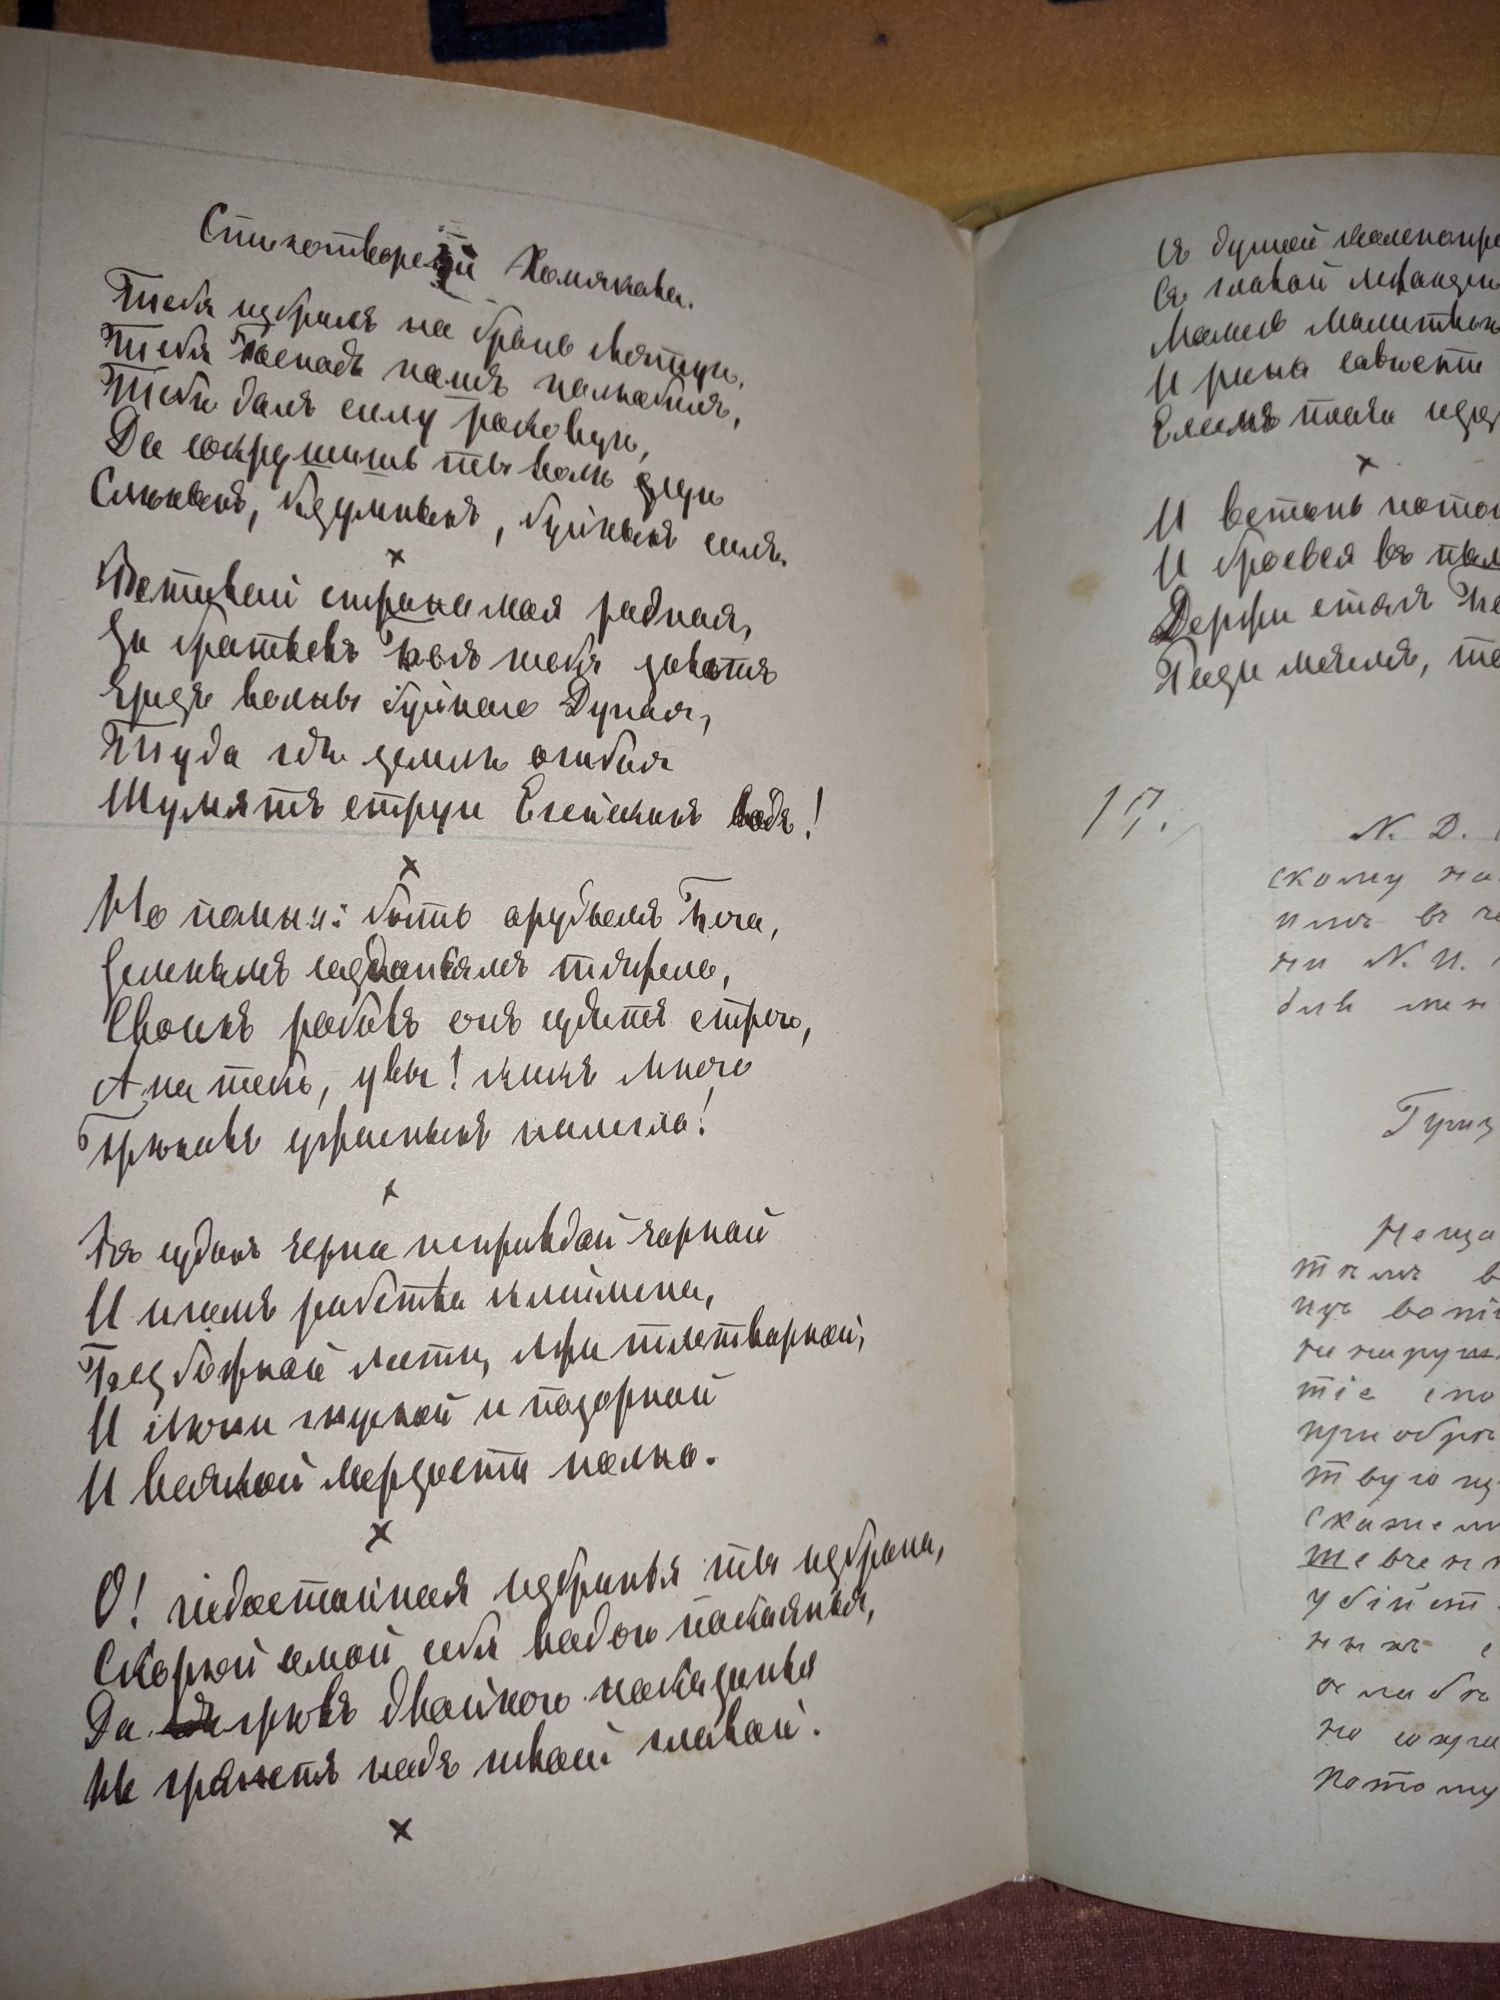 Стихотвореній Хомякова.
Тебя избралъ на брань святую,
Тебя Господь нашъ полюбилъ,
Тебѣ далъ силу роковую,
Да сокрушишь ты волю злую
Слѣпыхъ, безумныхъ, буйныхъ силъ.
×
Вставай страна моя родная,
За братьевъ Богъ тебя зоветъ
Чрезъ волны буйнаго Дуная,
Туда гдѣ землю огибая
Шумятъ струи Егейскихъ водъ!
×
Но помни: быть орудьемъ Бога,
Земнымъ созданьямъ тяжело,
Своихъ рабовъ онъ судитъ строго,
А на тебя, увы! какъ много
Грѣховъ ужасныхъ налегло!
×
Въ судахъ черна неправдой чорной
И игомъ рабства клеймена,
Безбожной лести, лжи тлетворной,
И лѣни гнусной и позорной
И всякой мерзости полна.
×
О! недостойная избранья ты избрана,
Скорѣй омой себя водою покаянья,
Да громъ двойного наказанья
Не грянетъ надъ твоей главой.
×
Съ душой колѣнопре
Съ главой лежащею
И раны совѣсти
Елеемъ плача
×
И встань потом
И бросься въ пыл
17.
N. Д.
скому на
ни N. И.
Неща
тіе спо
приобрѣ
твующ
скажем
шевчен
убійст
ныхъ с
ослабл
но сокра
потому